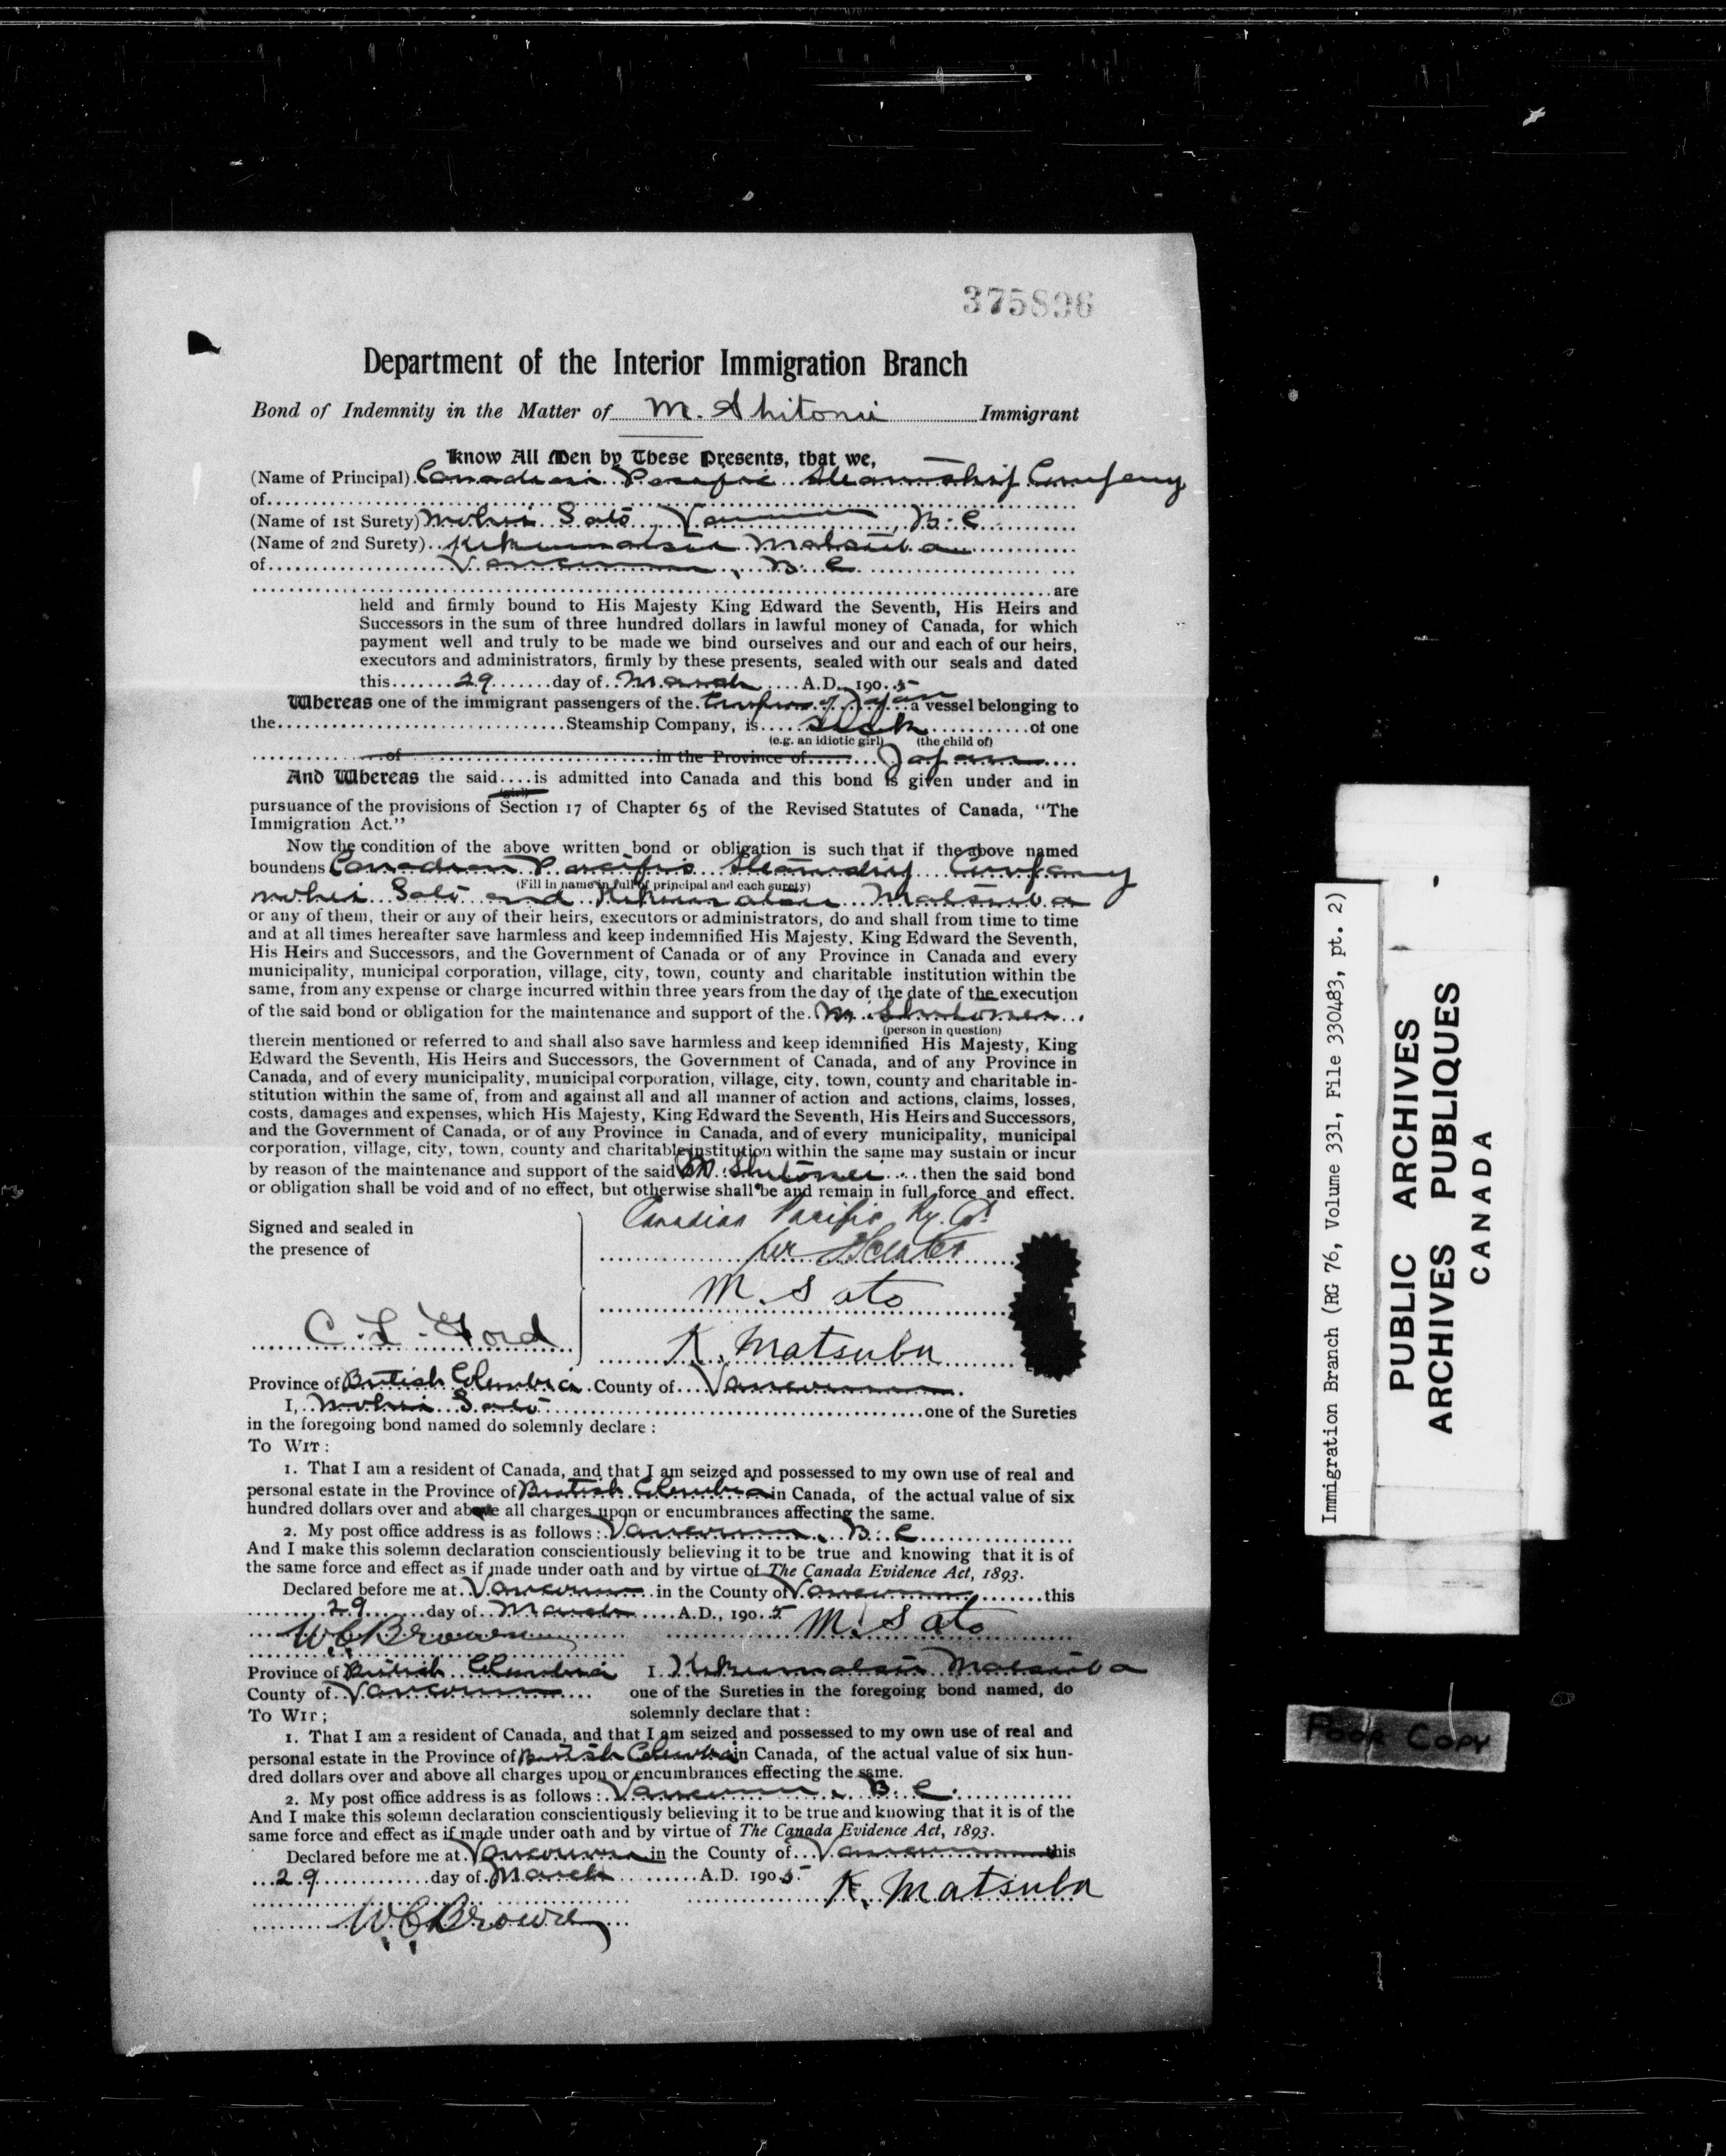 375896
Department of the Interior Immigration Branch
Bond of Indemnity in the Matter of M. Shitonii Immigrant
Know All Men by These Presents, that we,
(Name of Principal) Canadian Pacific Steamship Company
of
(Name of 1st Surety) Mohei Sato, Vancouver, B.C
(Name of 2nd Surety) Matsuba
of Vancouver, B.C
are
held and firmly bound to His Majesty King Edward the Seventh, His Heirs and
Successors in the sum of three hundred dollars in lawful money of Canada, for which
payment well and truly to be made we bind ourselves and our and each of our heirs,
executors and administrators, firmly by these presents, sealed with our seals and dated
this 29 day of March A.D., 190 5
Whereas one of the immigrant passengers of the Empress of Japan a vessel belonging to
the Steamship Company, is sick of one
(e.g. an idiotic girl) (the child of)
of in the Province of Japan
And Whereas the said....is admitted into Canada and this bond is given under and in
(girl)
pursuance of the provisions of Section 17 of Chapter 65 of the Revised Statutes of Canada, "The
Immigration Act."
Now the condition of the above written bond or obligation is such that if the above named
boundens Canadian Pacific Steamship Company
(Fill in name in full of principal and each surety)
Mohei Sato and Matsuba
or any of them, their or any of their heirs, executors or administrators, do and shall from time to time
and at all times hereafter save harmless and keep indemnified His Majesty, King Edward the Seventh,
His Heirs and Successors, and the Government of Canada or of any Province in Canada and every
municipality, municipal corporation, village, city, town, county and charitable institution within the
same, from any expense or charge incurred within three years from the day of the date of the execution
of the said bond or obligation for the maintenance and support of the M. Shitonei
(person in question)
therein mentioned or referred to and shall also save harmless and keep idemnified His Majesty, King
Edward the Seventh, His Heirs and Successors, the Government of Canada, and of any Province in
Canada, and of every municipality, municipal corporation, village, city, town, county and charitable in-
stitution within the same of, from and against all and all manner of action and actions, claims, losses,
costs, damages and expenses, which His Majesty, King Edward the Seventh, His Heirs and Successors,
and the Government of Canada, or of any Province in Canada, and of every municipality, municipal
corporation, village, city, town, county and charitable institution within the same may sustain or incur
by reason of the maintenance and support of the said M. Shitonei then the said bond
or obligation shall be void and of no effect, but otherwise shall be and remain in full force and effect.
Signed and sealed in
the presence of
Canadian Pacific Ry. Co.
per
M. Sato
C. L. Ford
K. Matsuba
Province of British Columbia County of Vancouver
I, Mohei Sato one of the Sureties
in the foregoing bond named do solemnly declare :
To Wit :
1. That I am a resident of Canada, and that I am seized and possessed to my own use of real and
personal estate in the Province of British Columbia in Canada, of the actual value of six
hundred dollars over and above all charges upon or encumbrances affecting the same.
2. My post office address is as follows : Vancouver, B.C
And I make this solemn declaration conscientiously believing it to be true and knowing that it is of
the same force and effect as if made under oath and by virtue of The Canada Evidence Act, 1893.
Declared before me at Vancouver in the County of Vancouver this
29 day of March A.D., 190 5 M. Sato
W C Brown
Province of British Columbia I Matsuba
County of Vancouver one of the Sureties in the foregoing bond named, do
To Wit ; solemnly declare that :
1. That I am a resident of Canada, and that I am seized and possessed to my own use of real and
personal estate in the Province of British Columbia in Canada, of the actual value of six hun-
dred dollars over and above all charges upon or encumbrances effecting the same.
2. My post office address is as follows : Vancouver, B.C.
And I make this solemn declaration conscientiously believing it to be true and knowing that it is of the
same force and effect as if made under oath and by virtue of The Canada Evidence Act, 1893.
Declared before me at Vancouver in the County of Vancouver this
29 day of March A.D. 190 5 K. Matsuba
W C Brown
Immigration Branch (RG 76, Volume 331, File 330483, pt. 2)
PUBLIC ARCHIVES
ARCHIVES PUBLIQUES
CANADA
Poor Copy